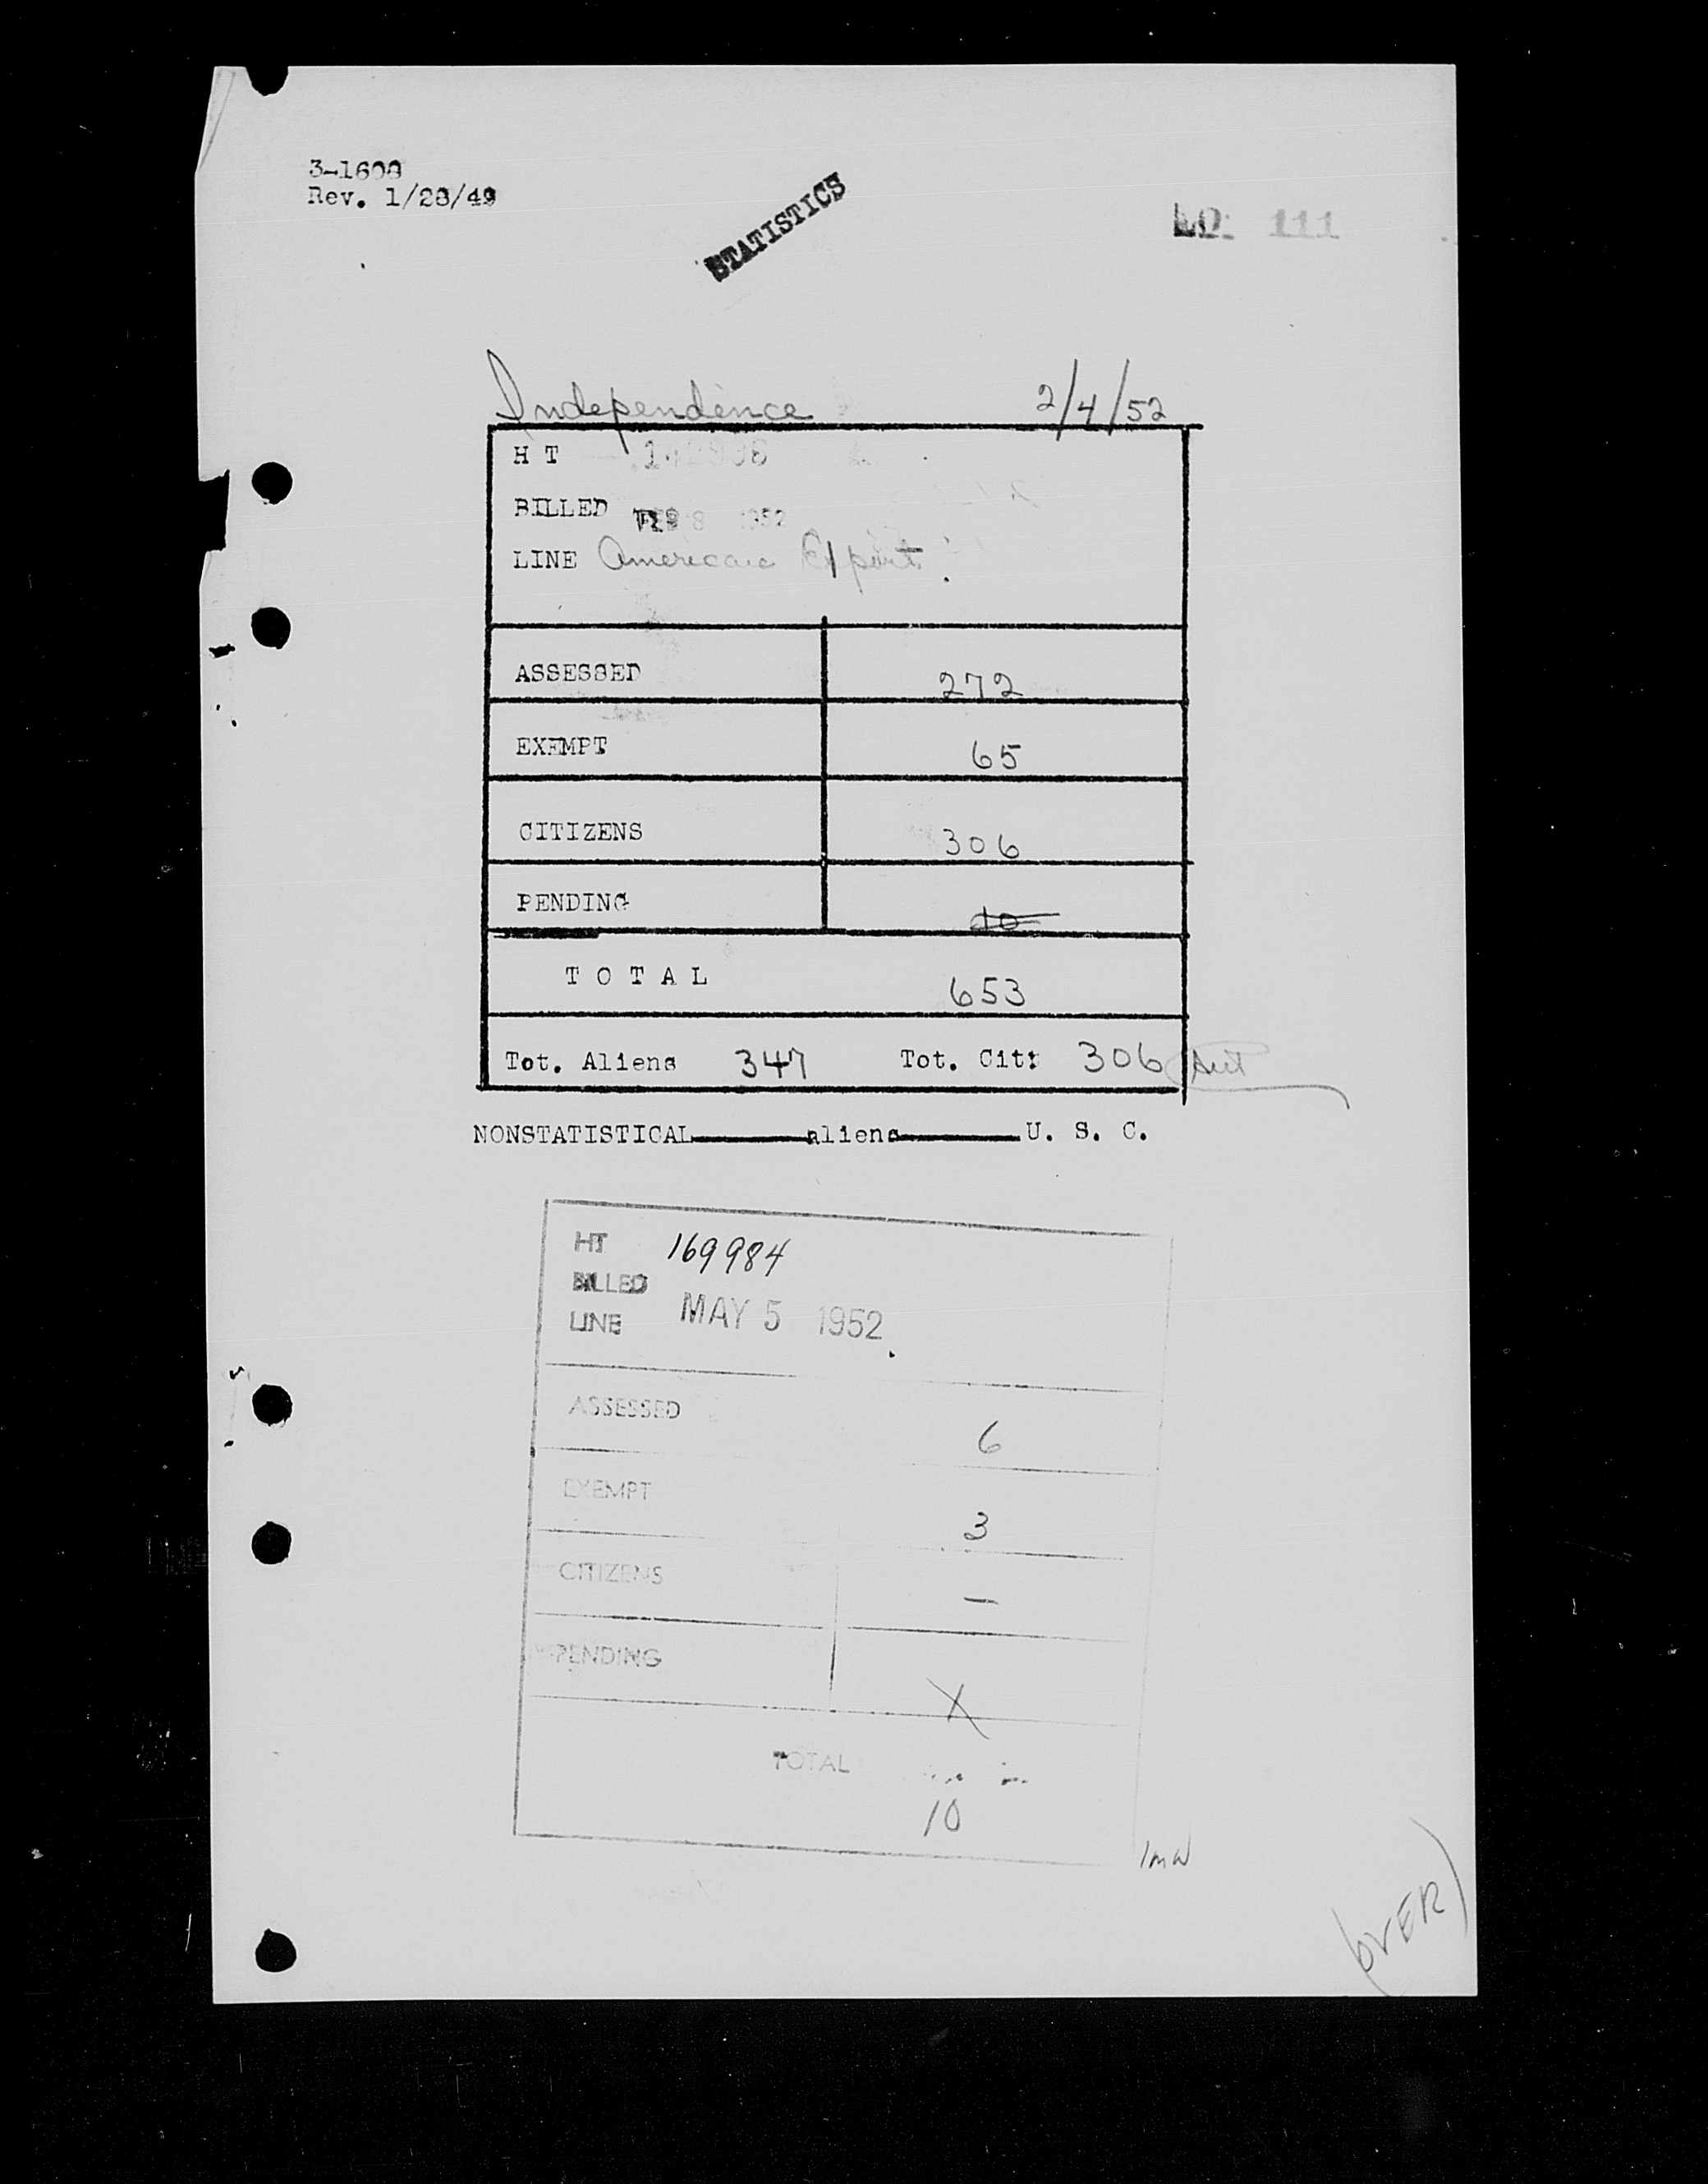 3-1608
Rev. 1/28/49
STATISTICS
111
Independence 2/4/52
H T
BILLED FEB 8 1952
LINE American Export
ASSESSED 272
EXEMPT 65
CITIZENS 306
PENDING 10
T O T A L 653
Tot. Aliens 347 Tot. Cit: 306
NONSTATISTICAL aliens U. S. C.
HT 169984
BILLED
LINE MAY 5 1952
ASSESSED 6
EXEMPT 3
CITIZENS —
PENDING X
TOTAL
10
lmw
(OVER)